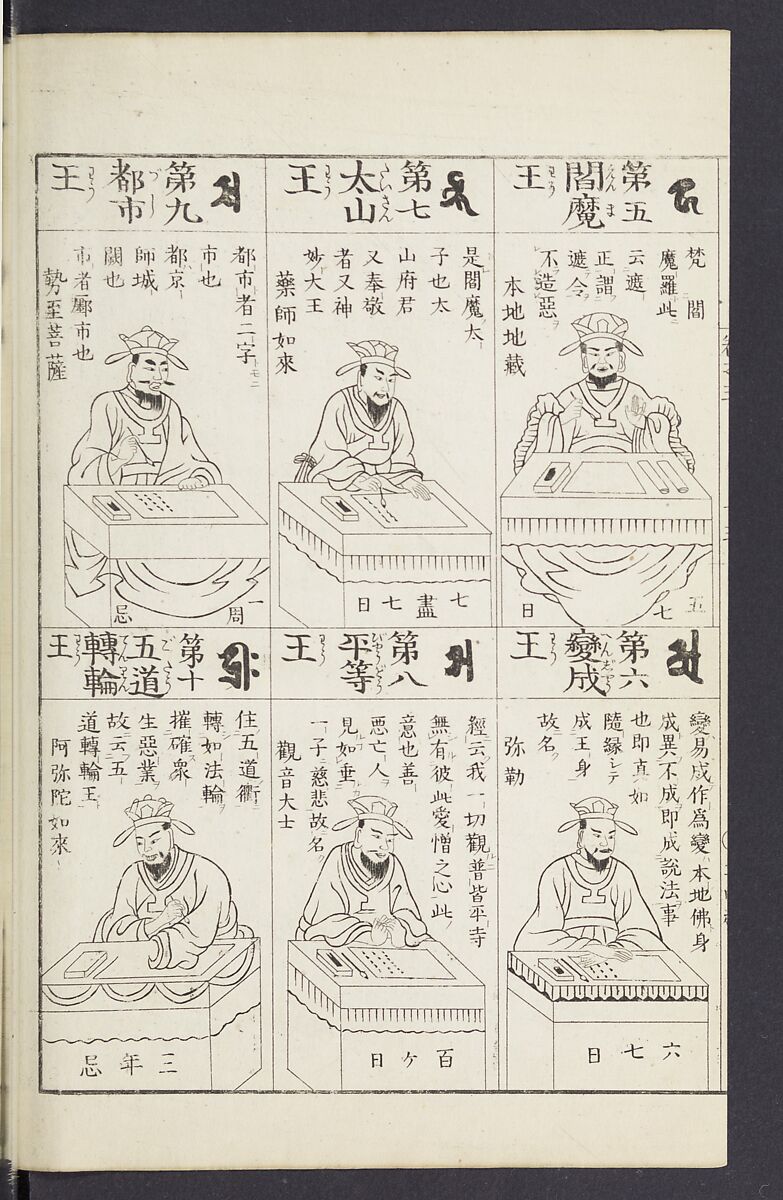 第五
閻魔
えんま
王
わう
梵閻
魔羅此ニ
云遮
正謂
遮令
不造惡
本地地藏
五七日
第六
變成
へんじやう
王
わう
變易成作爲變本地佛身
成異不成即成說法事
也即真如
隨縁シテ
成王身
故名
弥勒
六七日
第七
太山
たいさん
王
わう
是閻魔太
子也太
山府君
又奉敬
者又神
妙大王
藥師如來
七七日盡
第八
平等
びやうどう
王
わう
經云我一切觀普皆平等
無有彼此愛憎之心此
意也善
惡亡人
見如垂
一子慈悲故名
觀音大士
百ケ日
第九
都市
づし
王
わう
都市者二字トモニ
市也
都京
師城
闕也
市者鄽市也
勢至菩薩
一周忌
第十
五道
ごだう
轉輪
てんりん
王
わう
住五道衢
轉如法輪
摧確衆
生惡業
故云五
道轉輪王
阿弥陀如來
三年忌